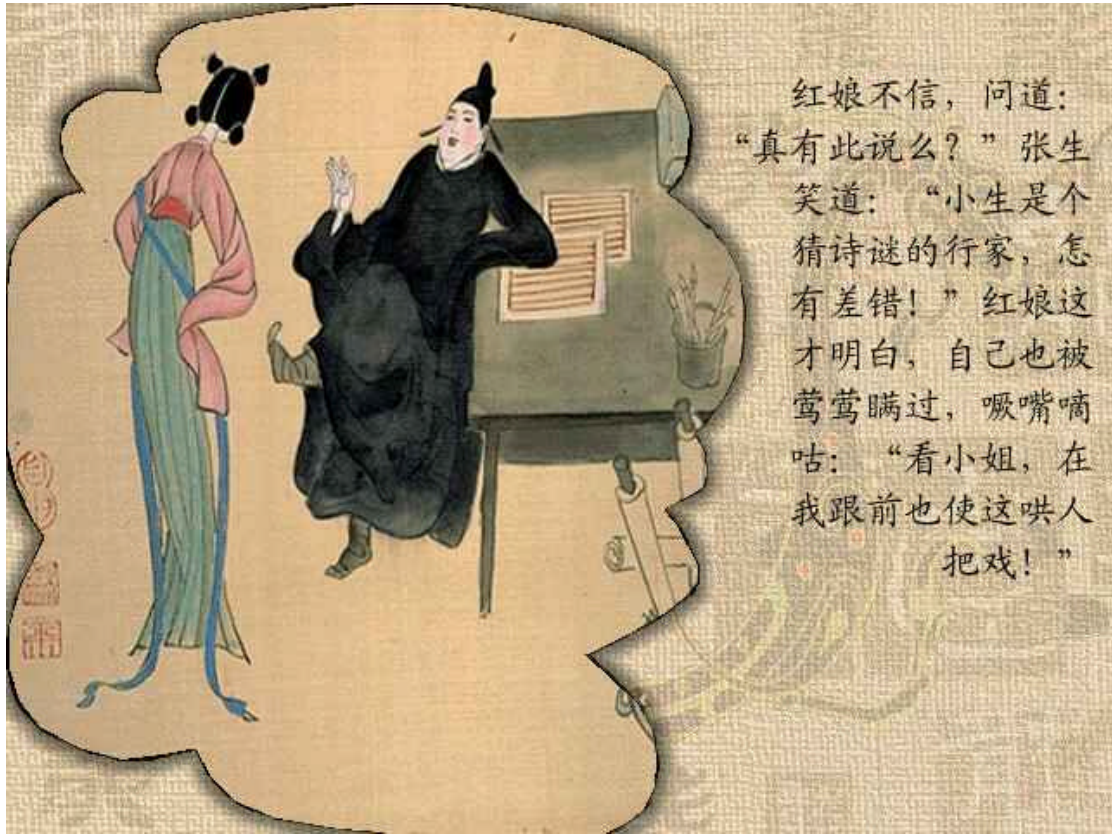 红娘不信，问道：
“真有此说么？”张生
笑道：“小生是个
猜诗谜的行家，怎
有差错！”红娘这
才明白，自己也被
莺莺瞒过，噘嘴嘀
咕：“看小姐，在
我跟前也使这哄人
把戏！”